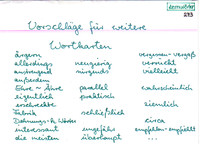 demokfibl
293
Vorschläge für weitere
Wortkarten
ärgern vergessen - vergaß
allerdings neugierig verrückt
anstrengend nirgends vielleicht
außerdem
Ehre ~ Ähre parallel wahrscheinlich
eigentlich praktisch
erschreckte ziemlich
Fabrik schließlich
Dehnungs-h Wörter circa
interessant ungefähr empfehlen - empfiehlt
die meisten überhaupt ...